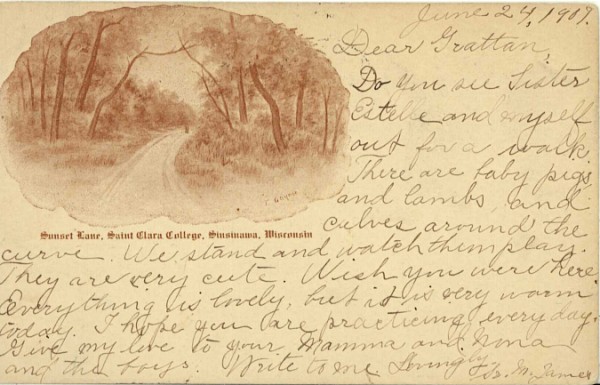 June 24, 1907.
Dear Grattan,
Do you see Sister
Estelle and myself
out for a walk.
There are baby pigs
and lambs and
calves around the
Sunset Lane, Saint Clara College, Sinsinawa, Wisconsin
curve. We stand and watch them play.
They are very cute. Wish you were here.
Everything is lovely, but it is very warm
today. I hope you are practicing every day.
Give my love to your Mamma and Nona
and the boys. Write to me Lovingly
Sr. M.